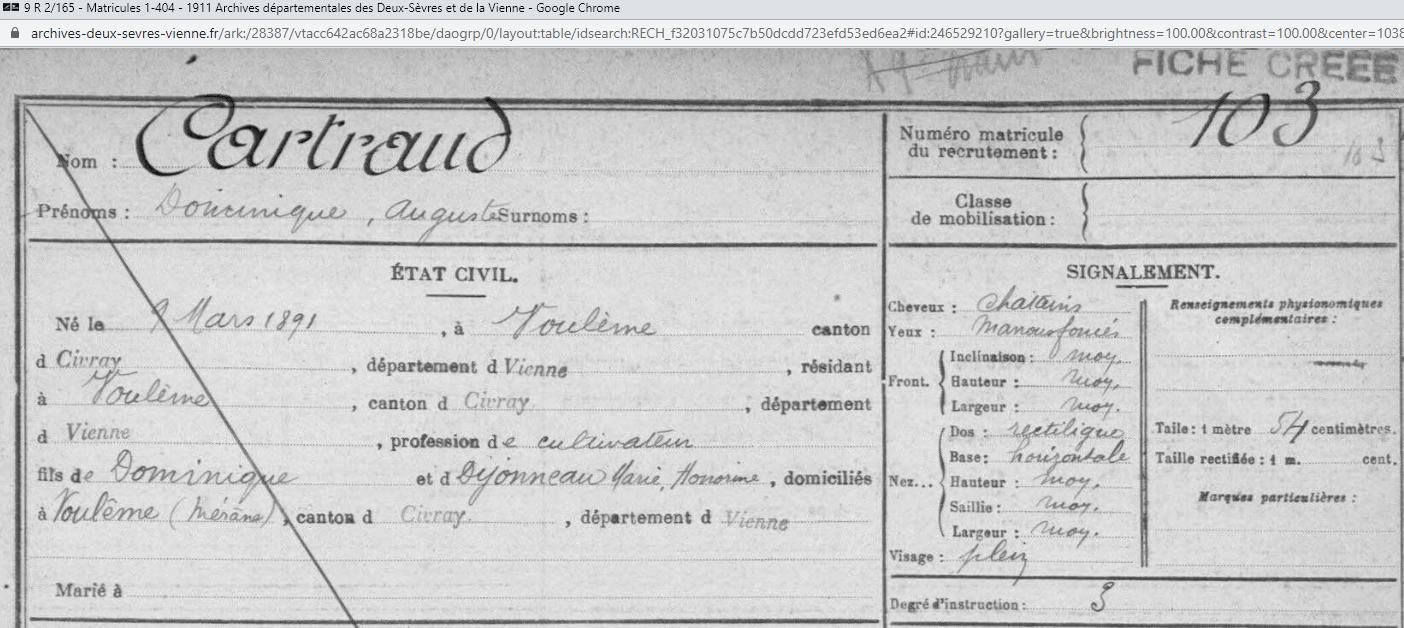 9 R 2/165 - Matricules 1-404 - 1911 Archives départementales des Deux-Sèvres et de la Vienne - Google Chrome
archives-deux-sevres-vienne.fr/ark:/28387/vtacc642ac68a2318be/daogrp/0/layout:table/idsearch:RECH_f32031075c7b50dcdd723efd53ed6ea2#id:246529210?gallery=true&brightness=100.00&contrast=100.00&center=1038
FICHE CRÉÉE
Nom : Cartraud
Prénoms : Dominique, Auguste Surnoms :
Numéro matricule du recrutement : 103
103
Classe de mobilisation :
ÉTAT CIVIL.
Né le 9 Mars 1891, à Voulême canton
d Civray, département d Vienne, résidant
à Voulême, canton d Civray, département
d Vienne, profession de cultivateur
fils de Dominique et d Dyonneau Marie, Honorine, domiciliés
à Voulême (Mérans), canton d Civray, département d Vienne
Marié à
SIGNALEMENT.
Cheveux : chatains
Yeux : marrons foncés
Front. Inclinaison : moy.
Hauteur : moy.
Largeur : moy.
Nez... Dos : rectiligne
Base : horizontale
Hauteur : moy.
Saillie : moy.
Largeur : moy.
Visage : plein
Renseignements physionomiques complémentaires :
Taile : 1 mètre 54 centimètres.
Taille rectifiée : 1 m. cent.
Marques particulières :
Degré d'instruction : 3